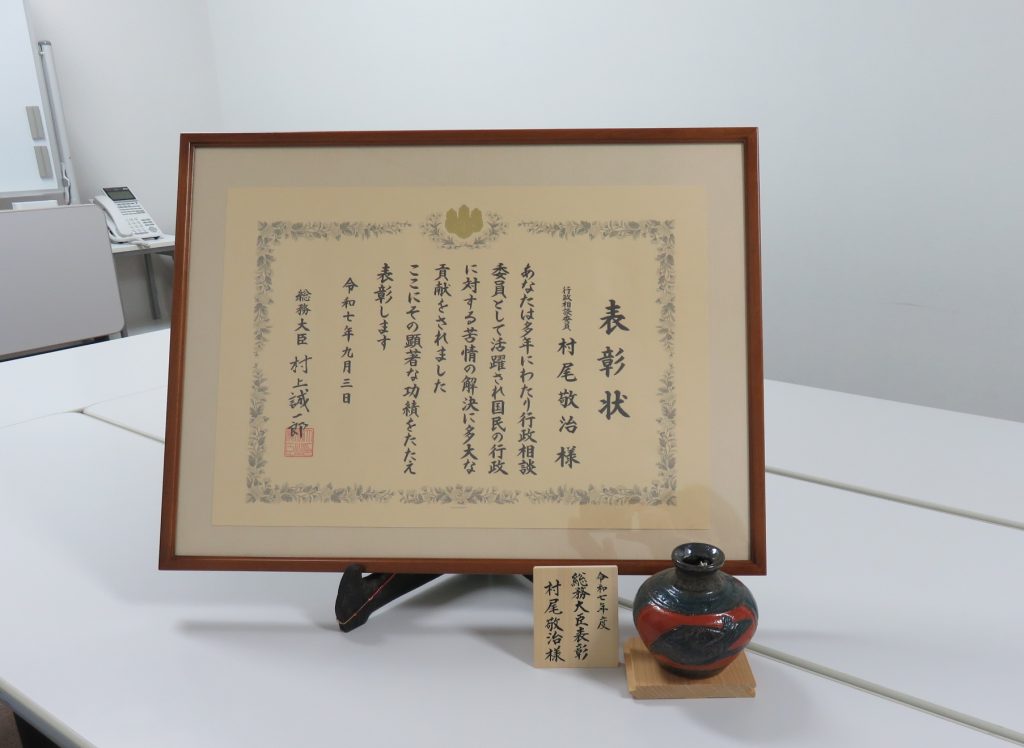 表彰状
行政相談委員 村尾敬治様
あなたは多年にわたり行政相談
委員として活躍され国民の行政
に対する苦情の解決に多大な
貢献をされました
ここにその顕著な功績をたたえ
表彰します
令和七年九月三日
総務大臣 村上誠一郎
令和七年度
総務大臣表彰
村尾敬治様